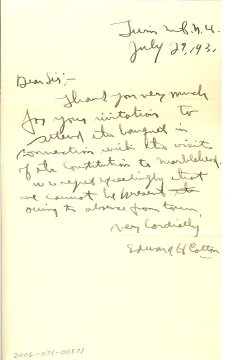 July 27, 193.
Dear Sir;-
Thank you very much
for your invitation to
attend the banquet in
connection with the visits
of the Constitution to Marblehead.
we regret exceedingly that
we cannot be present
owing to absence from town,
Very Cordially
Edward H Cotton
2006-071-00371